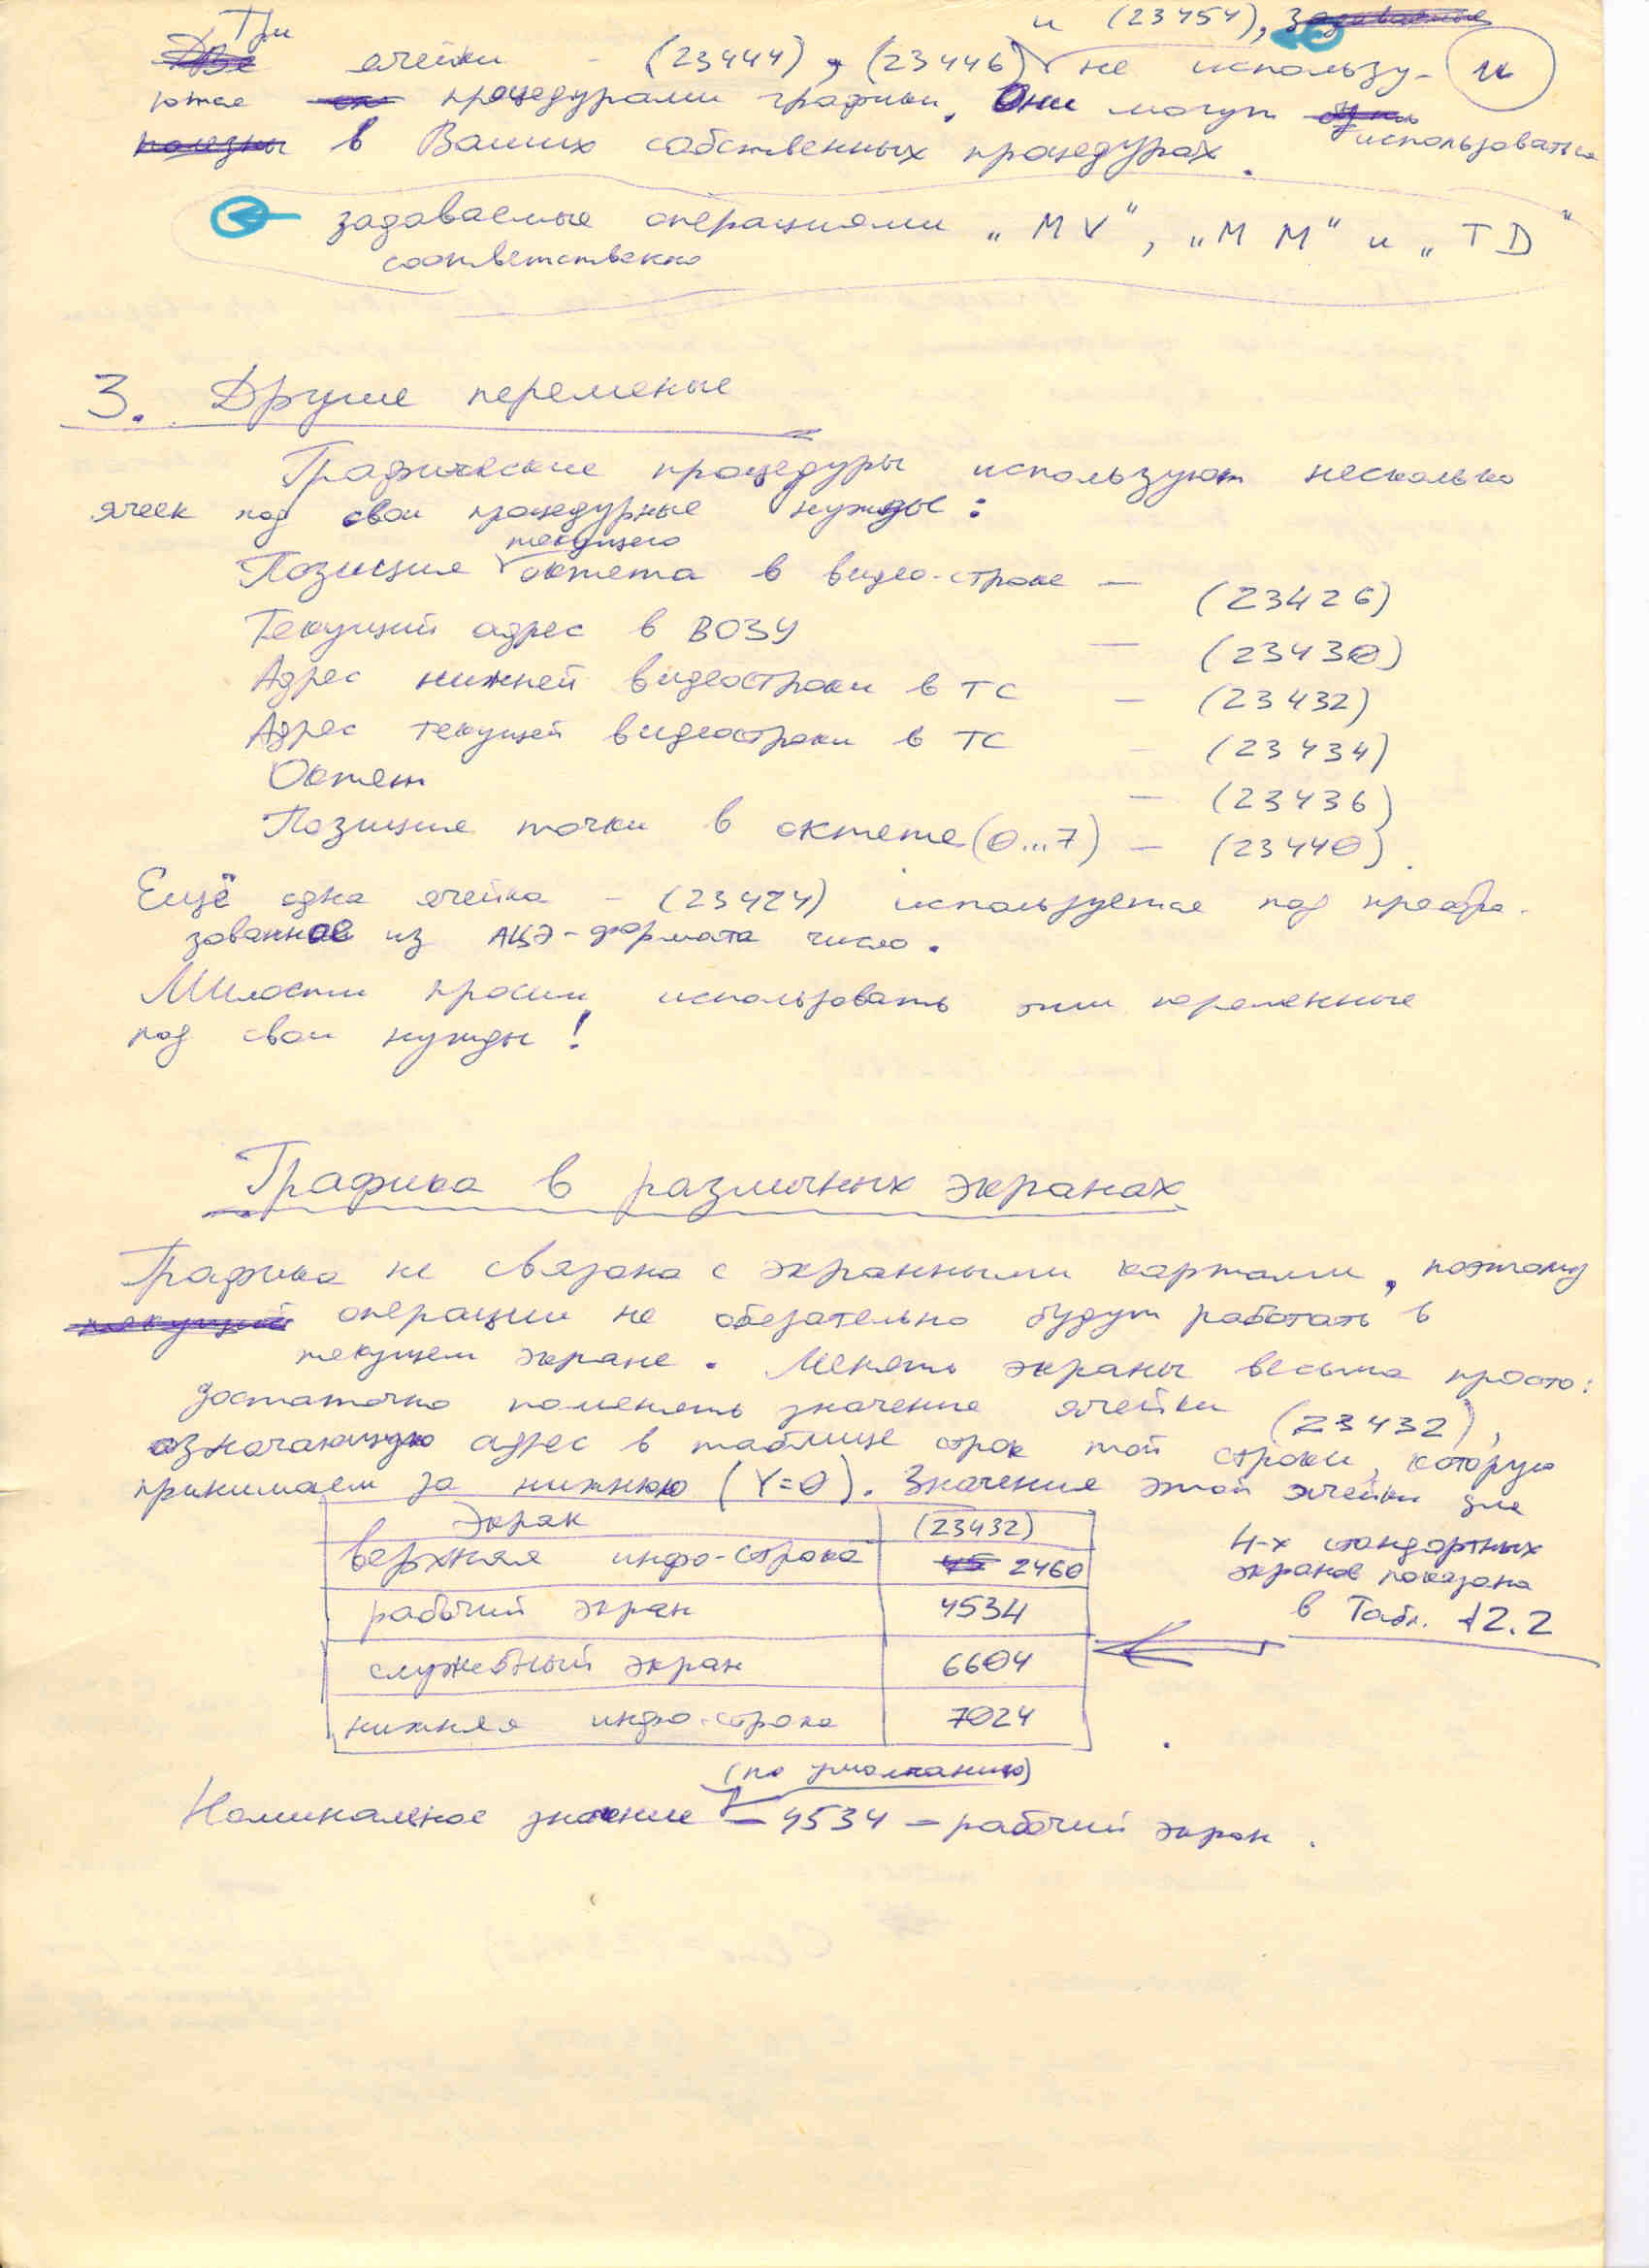 Три и (23454), задаваемые
Две ячейки - (23444), (23446) не использу- 11
ются процедурами графики. Они могут
полезны в Ваших собственных процедурах. использоваться
задаваемые операциями „MV", „MM" и „TD"
соответственно
3. Другие переменые
Графические процедуры используют несколько
ячеек под свои процедурные нужды:
текущего
Позиция октета в видео-строке — (23426)
Текущий адрес в ВОЗУ — (23430)
Адрес нижней видеостроки в ТС — (23432)
Адрес текущей видеостроки в ТС — (23434)
Октет — (23436)
Позиция точки в октете (0...7) — (23440).
Ещё одна ячейка - (23424) используется под преобра-
зованное из АЦЭ-формата число.
Милости просим использовать эти переменные
под свои нужды!
Графика в различных экранах
Графика не связана с экранными картами, поэтому
текущий операции не обязательно будут работать в
текущем экране. Менять экраны весьма просто:
достаточно поменять значение ячейки (23432),
означающую адрес в таблице строк той строки, которую
принимаем за нижнюю (Y=0). Значения этой ячейки для
4-х стандартных
экранов показана
в Табл. 12.2
Экран (23432)
верхняя инфо-строка 45 2460
рабочий экран 4534
служебный экран 6604
нижняя инфо-строка 7024
(по умолчанию)
Номинальное значение — 4534 — рабочий экран.